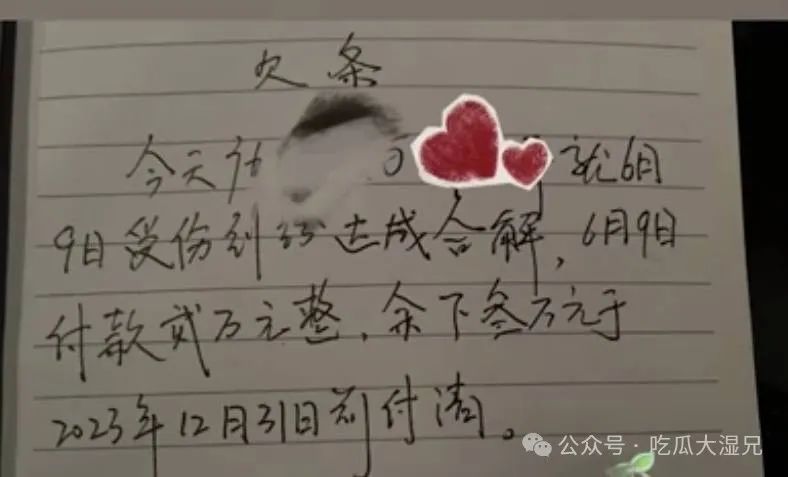 欠条
今天 就6月
9日受伤纠纷达成合解，6月9日
付款贰万元整、余下叁万元于
2023年12月31日前付清。
公众号·吃瓜大湿兄